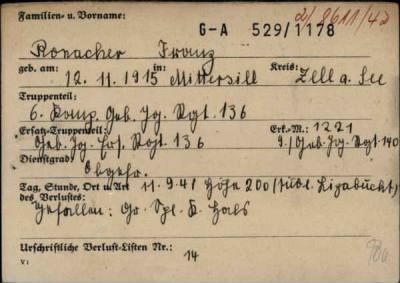 Familien- u. Vorname:
G-A 529/1178
2/8611/42
Ronacher Franz
geb. am: 12.11.1915 in: Mittersill Kreis: Zell a. See
Truppenteil:
6. Komp. Geb. Jg. Rgt. 136
Ersatz-Truppenteil: Erk.-M.: 1221
Geb. Jg. Ers. Rgt. 136 9./Geb. Jg. Rgt. 140
Dienstgrad:
Obgefr.
Tag, Stunde, Ort u. Art 11.9.41 Höhe 200 (südl. Lizabucht)
des Verlustes:
Gefallen: Gr. Spl. K. Hals
Urschriftliche Verlust-Listen Nr.:
14
V: